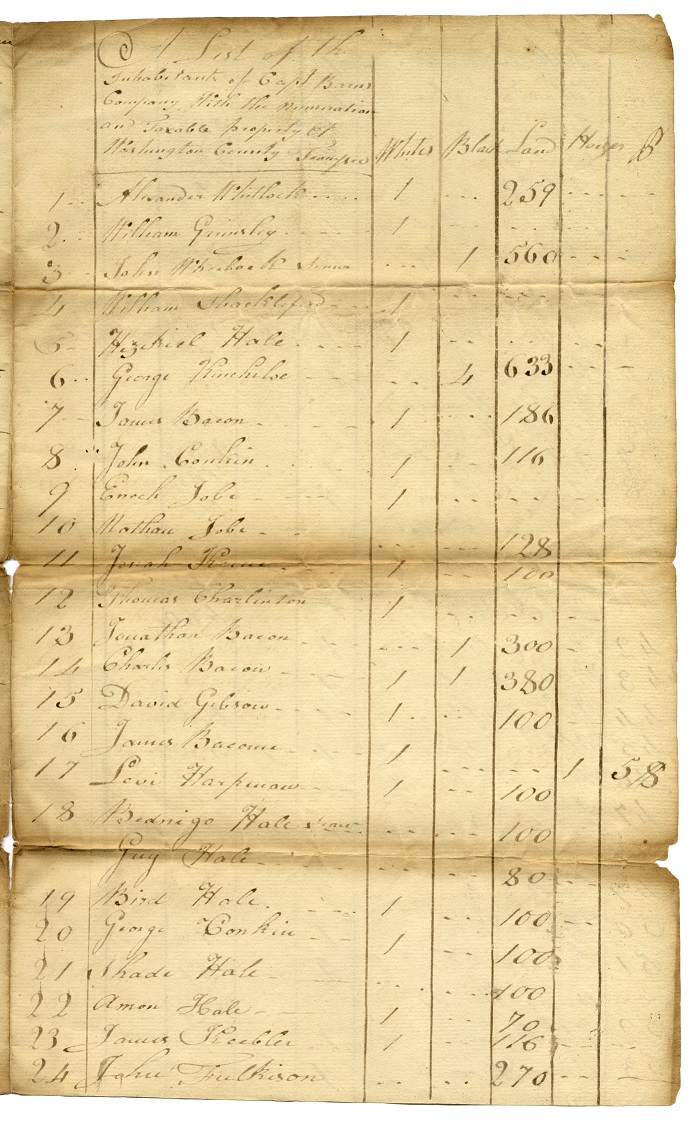 A List of th
Inhabitants of Capt Barns
Company With the numeration
and Taxable property of
Washington County Whites Black Land Horses $
1 Alexander Whitlock 1 259
2 William Grimsley 1
3 John 1 560
4 William Shackleford 1
5 Hezekiel Hale 1
6 George Kincheloe 4 633
7 James Bacon 1 186
8 John Conkin 1 116
9 Enoch Jobe 1
10 Nathan Jobe 128
11 Josiah 1 100
12 Thomas Charlinton 1
13 Jonathan Bacon 1 300
14 Charls Bacon 1 1 380
15 David Gibson 1 100
16 James Bacome 1
17 Levi 1 100 1 5$
18 Bednigo Hale 100
Guy Hale 80
19 Bird Hale 1 100
20 George Conkin 1 100
21 Shade Hale 100
22 Amon Hale 1 70
23 James Keebler 1 116
24 John Fulkison 270